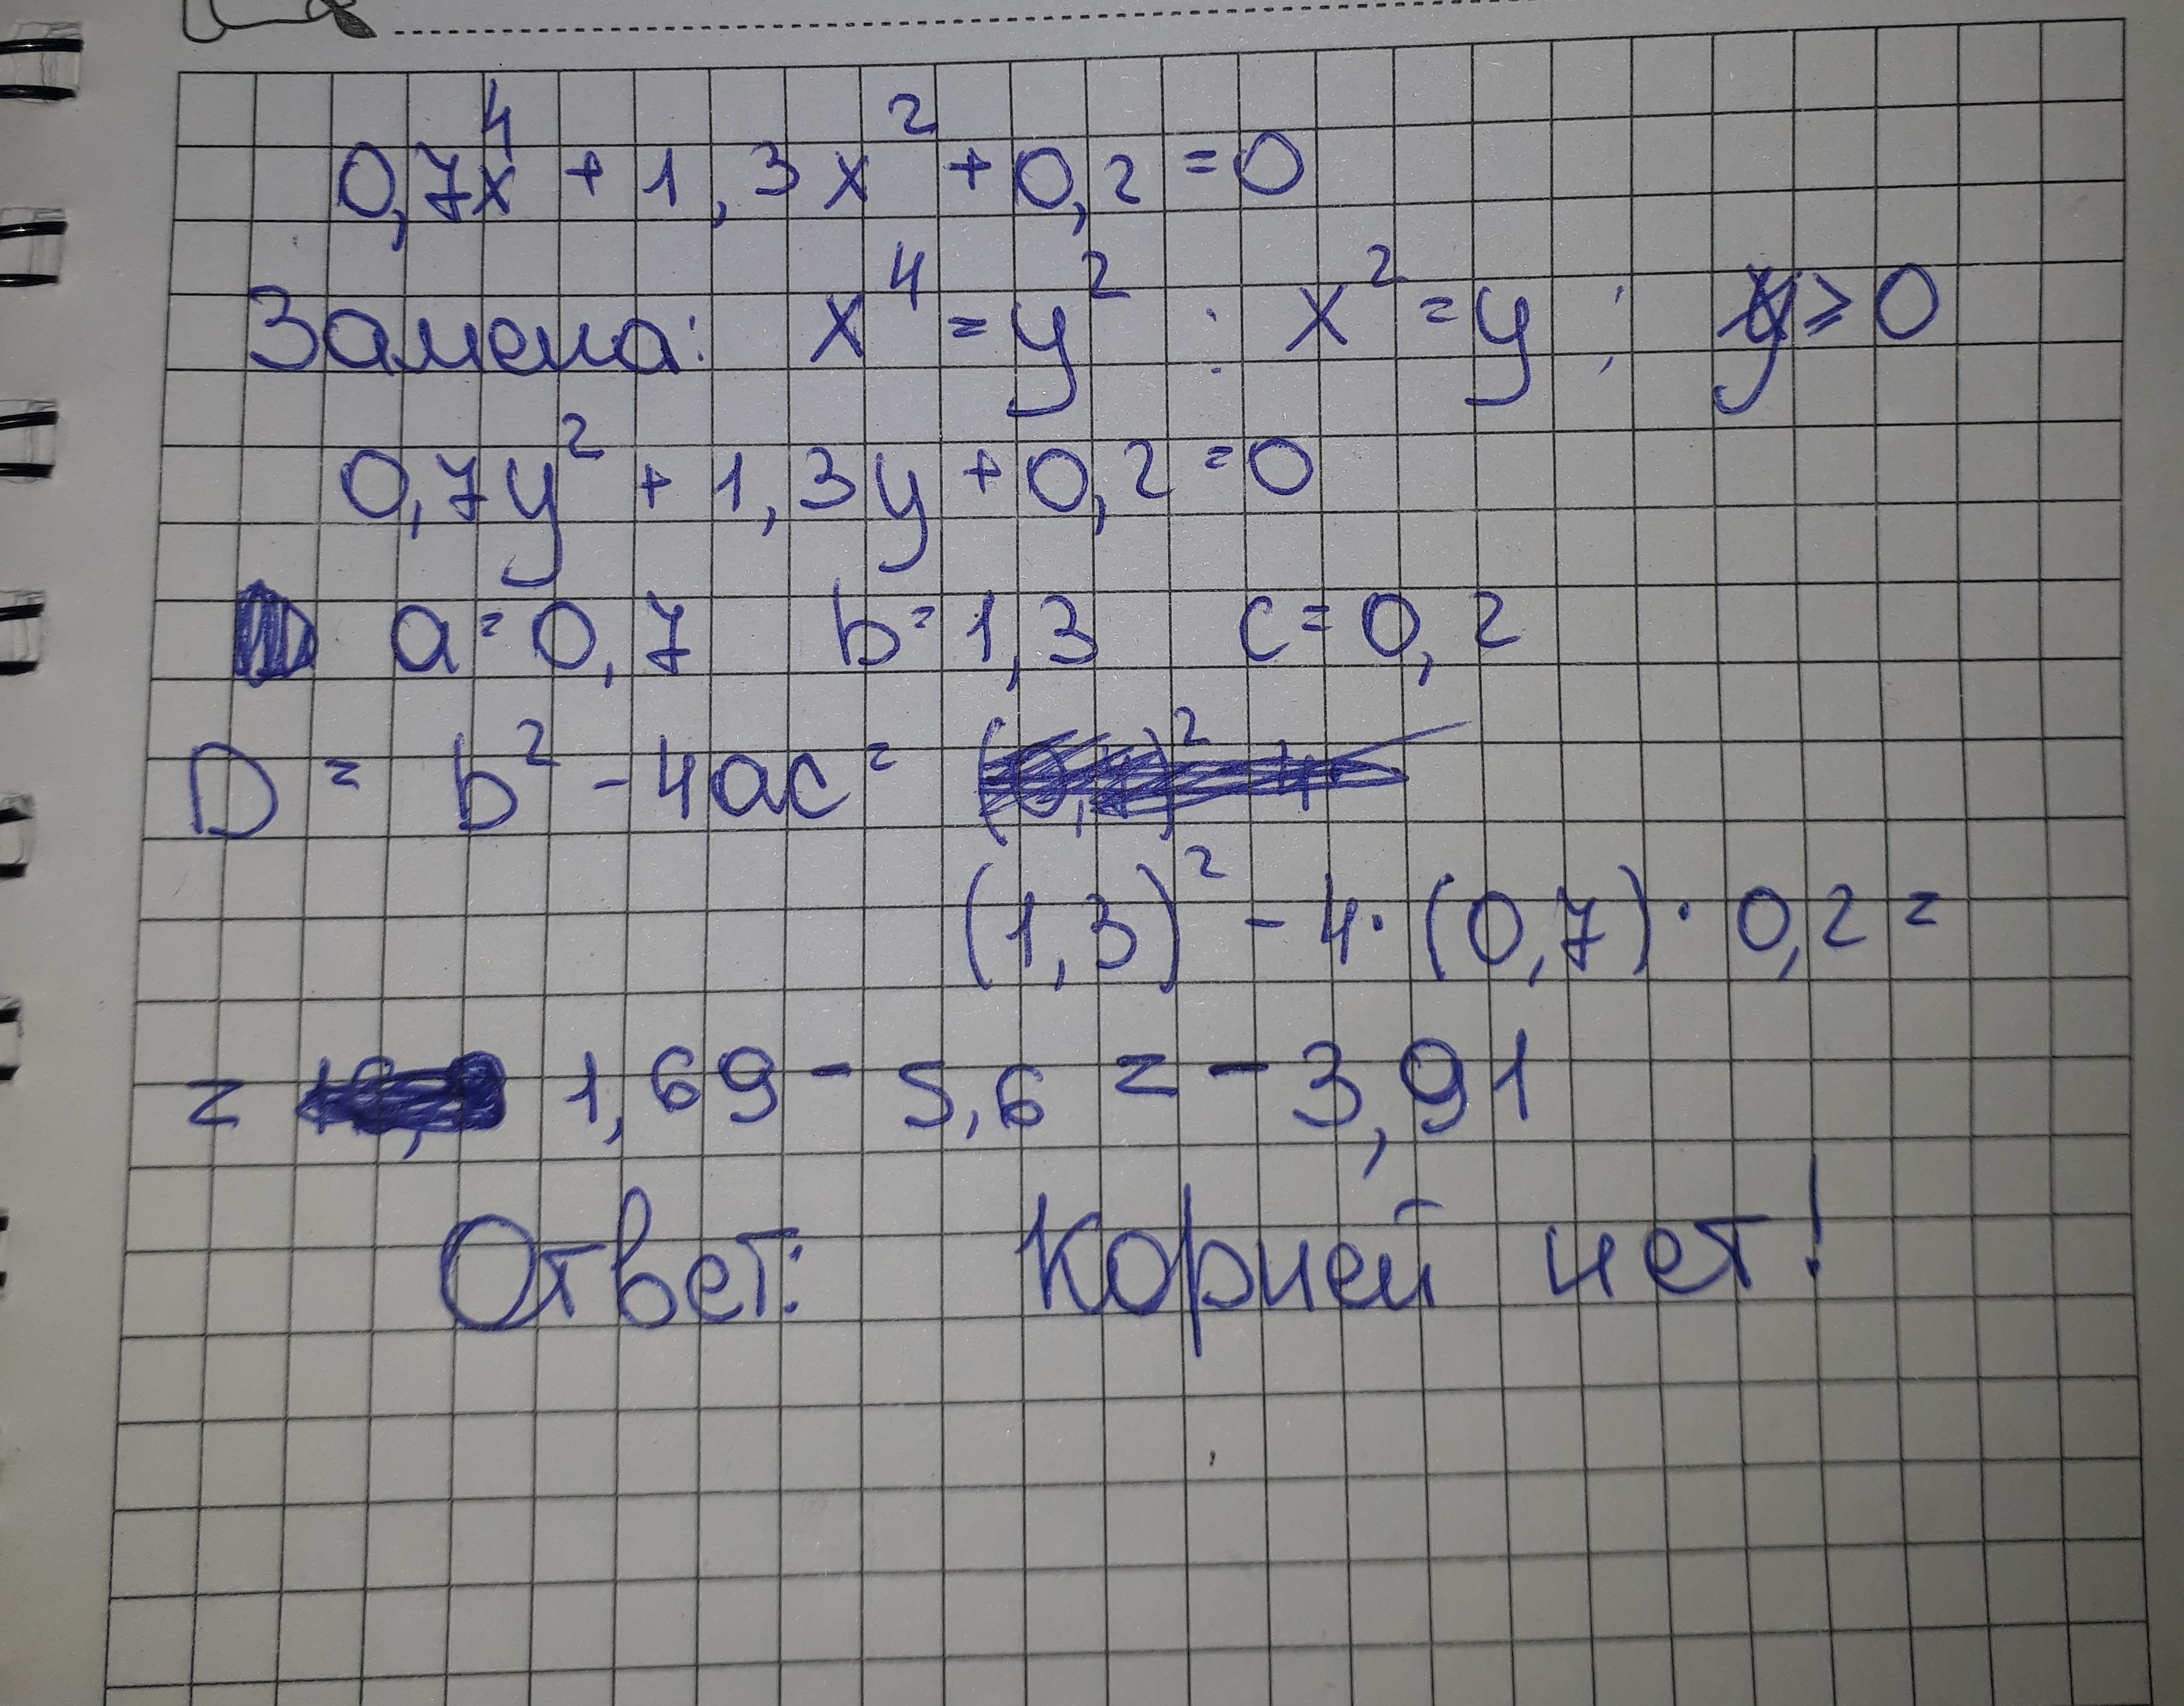 0,7x⁴ + 1,3x² + 0,2 = 0
Замена: x⁴ = y² : x² = y ; y ≥ 0
0,7y² + 1,3y + 0,2 = 0
a = 0,7 b = 1,3 c = 0,2
D = b² - 4ac =
(1,3)² - 4·(0,7)·0,2 =
= 1,69 - 5,6 = -3,91
Ответ: Корней нет!